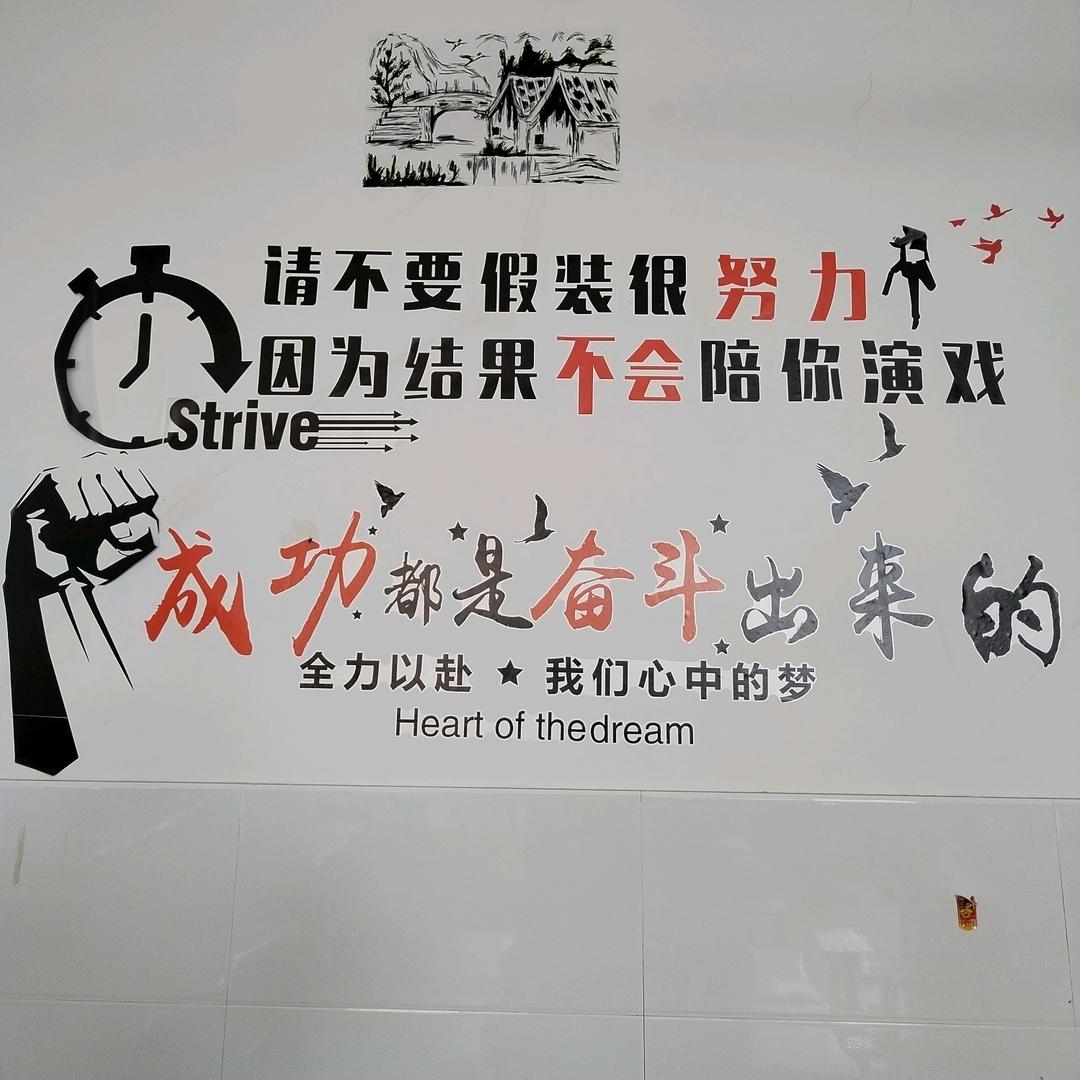 请不要假装很努力
因为结果不会陪你演戏
Strive
成功都是奋斗出来的
全力以赴★我们心中的梦
Heart of thedream